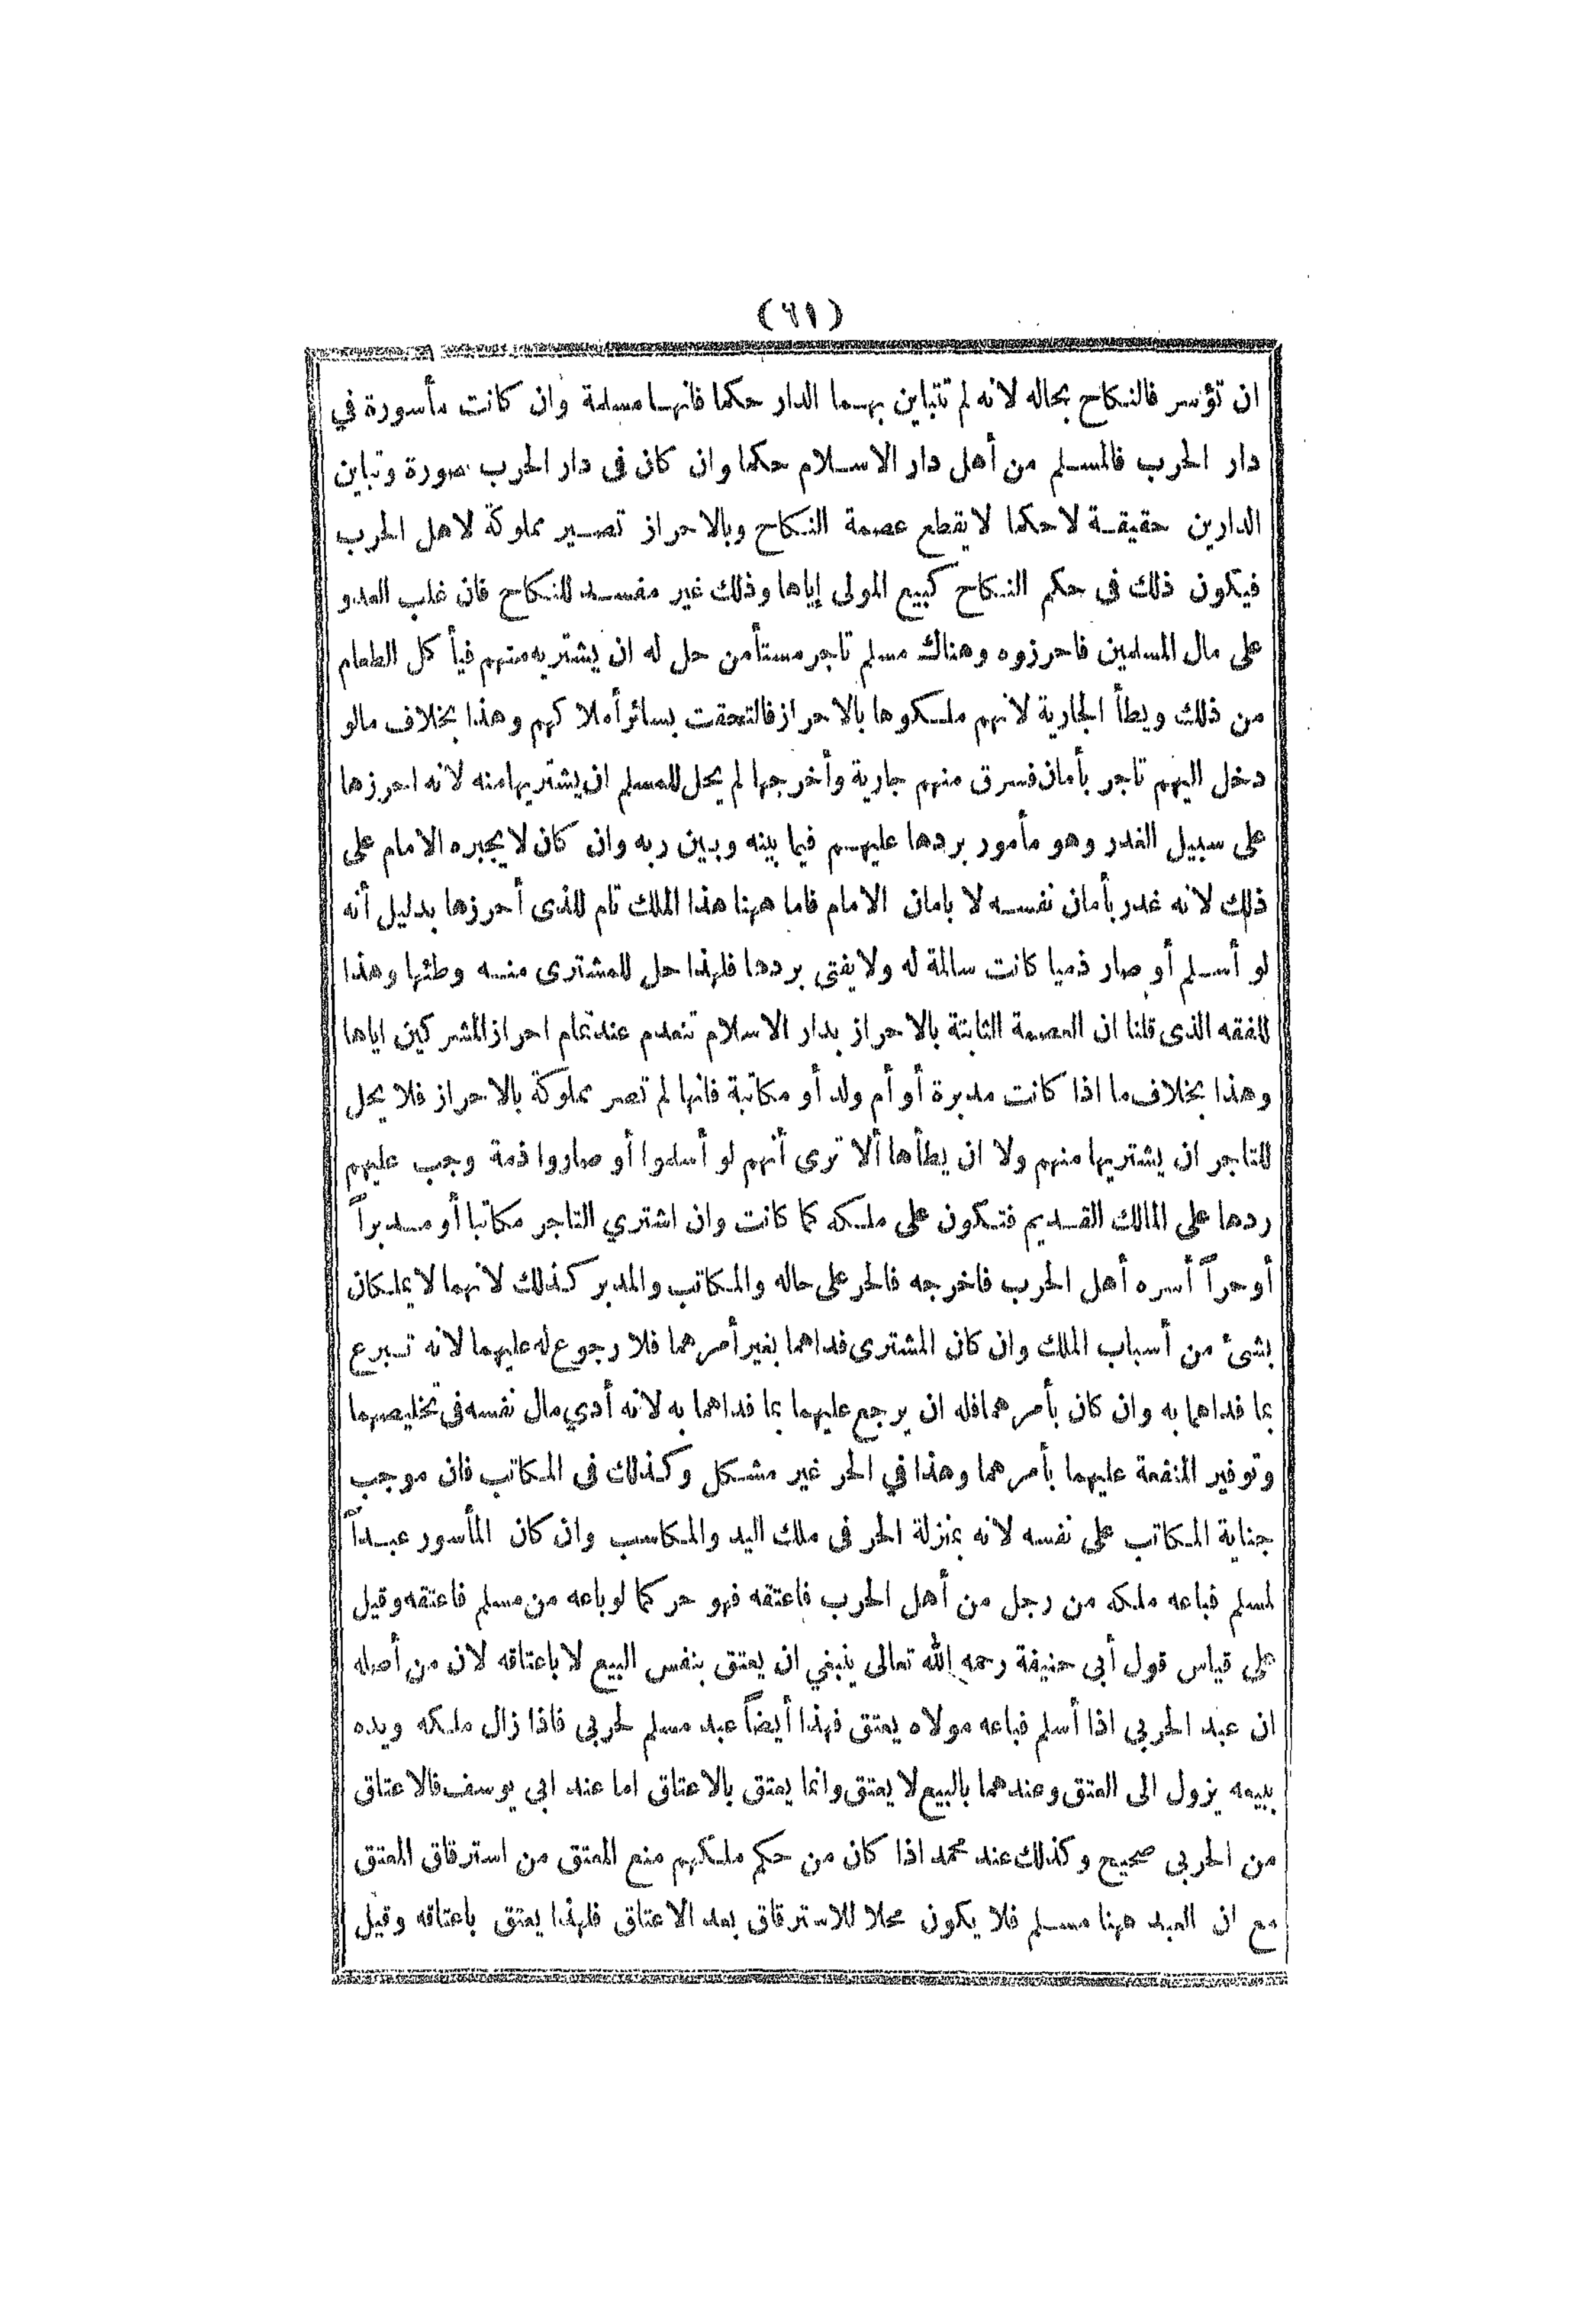 (٦١)
ان تؤسر فالنكاح بحاله لانه لم تتباين بهما الدار حكما فانها مسلمة وان كانت مأسورة في
دار الحرب فالمسلم من أهل دار الاسلام حكما وان كان فى دار الحرب صورة وتباين
الدارين حقيقة لا حكما لا يقطع عصمة النكاح وبالاحراز تصير مملوكة لاهل الحرب
فيكون ذلك فى حكم النكاح كبيع المولى إياها وذلك غير مفسد للنكاح فان غلب العدو
على مال المسلمين فاحرزوه وهناك مسلم تاجر مستأمن حل له ان يشتريه منهم فيأ كل الطعام
من ذلك ويطأ الجارية لانهم ملكوها بالاحراز فالتحقت بسائر أملاكهم وهذا بخلاف مالو
دخل اليهم تاجر بأمان فسرق منهم جارية وأخرجها لم يحل للمسلم ان يشتريها منه لانه احرزها
على سبيل الغدر وهو مأمور بردها عليهم فيما بينه وبين ربه وان كان لا يجبره الامام على
ذلك لانه غدر بأمان نفسه لا بامان الامام فاما ههنا هذا الملك تام للذى أحرزها بدليل أنه
لو أسلم أو صار ذميا كانت سالمة له ولا يفتى بردها فلهذا حل للمشترى منه وطئها وهذا
للفقه الذى قلنا ان العصمة الثابتة بالاحراز بدار الاسلام تنعدم عند تمام احراز المشركين اياها
وهذا بخلاف ما اذا كانت مدبرة أو أم ولد أو مكاتبة فانها لم تصر مملوكة بالاحراز فلا يحل
للتاجر ان يشتريها منهم ولا ان يطأها ألا ترى أنهم لو أسلموا أو صاروا ذمة وجب عليهم
ردها على المالك القديم فتكون على ملكه كما كانت وان اشتري التاجر مكاتبا أو مدبراً
أو حراً أسره أهل الحرب فاخرجه فالحر على حاله والمكاتب والمدبر كذلك لانهما لا يملكان
بشئ من أسباب الملك وان كان المشترى فداهما بغير أمرهما فلا رجوع له عليهما لانه تبرع
بما فداهما به وان كان بأمرهما فله ان يرجع عليهما بما فداهما به لانه أدي مال نفسه فى تخليصهما
وتوفير المنفعة عليهما بأمرهما وهذا في الحر غير مشكل وكذلك فى المكاتب فان موجب
جناية المكاتب على نفسه لانه بمنزلة الحر فى ملك اليد والمكاسب وان كان المأسور عبداً
لمسلم فباعه ملكه من رجل من أهل الحرب فاعتقه فهو حر كما لو باعه من مسلم فاعتقه وقيل
على قياس قول أبى حنيفة رحمه الله تعالى ينبغي ان يعتق بنفس البيع لا باعتاقه لان من أصله
ان عبد الحربي اذا أسلم فباعه مولاه يعتق فهذا أيضاً عبد مسلم لحربى فاذا زال ملكه ويده
ببيعه يزول الى العتق وعندهما بالبيع لا يعتق وانما يعتق بالاعتاق اما عند ابى يوسف فالاعتاق
من الحربى صحيح وكذلك عند محمد اذا كان من حكم ملكهم منع المعتق من استرقاق المعتق
مع ان العبد ههنا مسلم فلا يكون محلا للاسترقاق بعد الاعتاق فلهذا يعتق باعتاقه وقيل